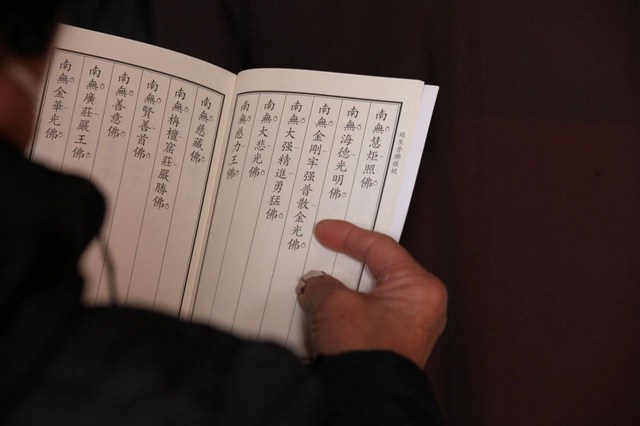 南無慧炬照佛
南無海德光明佛
南無金剛牢强普散金光佛
南無大强精進勇猛佛
南無大悲光佛
南無慈力王佛
南無慈藏佛
南無栴檀窟莊嚴勝佛
南無賢善首佛
南無善意佛
南無廣莊嚴王佛
南無金華光佛